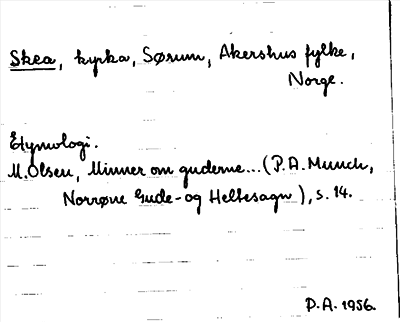 Skea, kyrka, Sørum, Akershus fylke,
Norge.
Etymologi.
M. Olsen, Minner om guderne... (P. A. Munch,
Norrøne Gude- og Heltesagn), s. 14.
P. A. 1956.